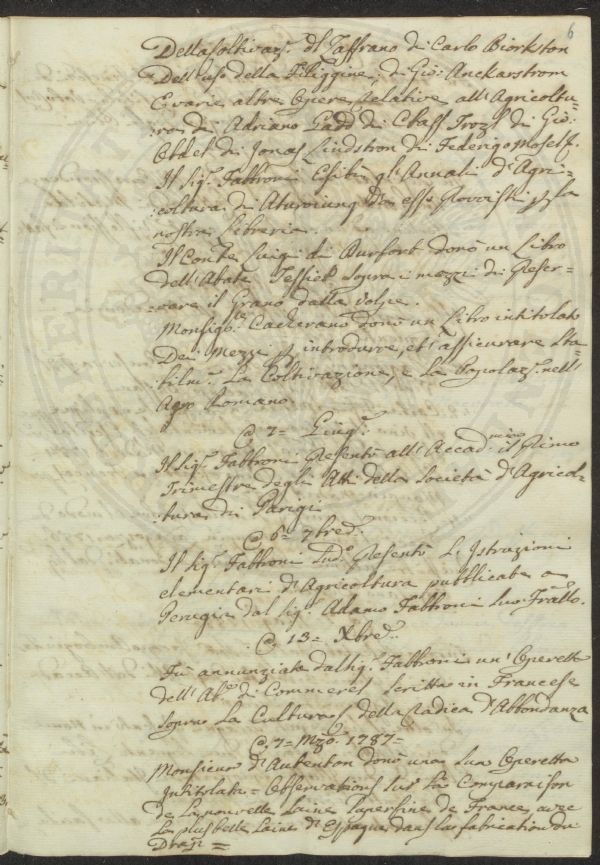 6
Della Coltivaz.e dl Zaffrano di Carlo Biorkston
Dell'uso della Filiggine, di Gio: Anckarstrom
E varie altre Opere relative all'Agricoltu-
:ra di Adriano Gadd di Class Trozl di Gio:
di Jonas Lindstron di Federigo
Il Sig.e Fabbroni Esibì gl'Annali d'Agri-
:coltura di da esso
nostra Libreria.
Il Conte Luigi di Durfort donò un Libro
dell'Abate Tessier sopra i mezzi di Preser-
:vare il Grano dalla Volpe.
Monsig.re Cacherano donò un Libro intitolato
Dei Mezzi p introdurre, et assicurare Sta-
bilm.e La Coltivazione, e La Popolaz.e nell'
Agro Romano
A 7= Giug.o
Il Sig.e Fabbroni Presentò all'Accad.a il Primo
Trimestre degli Atti della Società d'Agricol-
:tura di Parigi
A 6= 7bre d.o
Il Sig.e Fabbroni Sud.o Presentò L'Istruzioni
elementari d'Agricoltura pubblicate a
Perugia dal Sig.e Adamo Fabbroni Suo Fratello.
A 13= Xbre d.o
Fù annunziata dal Sig.e Fabbroni un'Operetta
dell'Ab.e di Commerel Scritta in Francese
Sopra La Cultura della Radica d'Abbondanza
A 7= Mzo. 1787=
Monsieur d'Aubenton donò una Sua Operetta
Intitolata= Observations Sur la Comparaison
de La nouvelle Laine Superfine de France avec
La plus belle Laine d'Espagne dans la fabrication du
Drap=